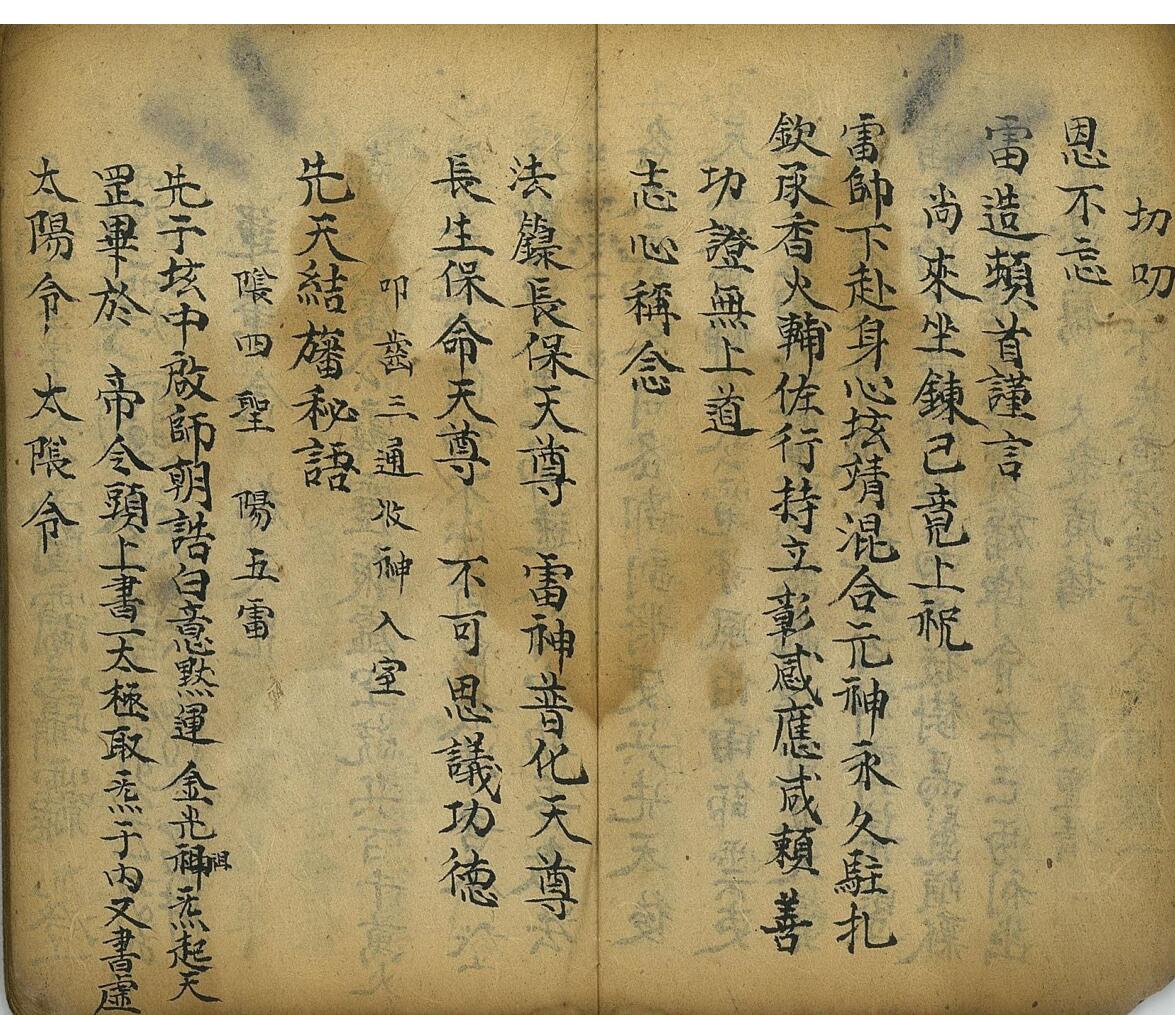 切叨
恩不忘
雷造頼首謹言
尚來坐鍊己竟上祝
雷帥下赴身心垓靖混合元神永久駐扎
欽承香火輔佐行持立彰感應咸頼善
功證無上道
志心稱念
法籙長保天尊 雷神普化天尊
長生保命天尊 不可思議功德
叩齒三通收神入室
先天結旛秘語
陰四聖 陽五雷
先于垓中啟師朝誥白意黙運金光神炁起天
祖
罡畢於 帝令頭上書一太極取炁于內又書虛
太陽令 太陰令